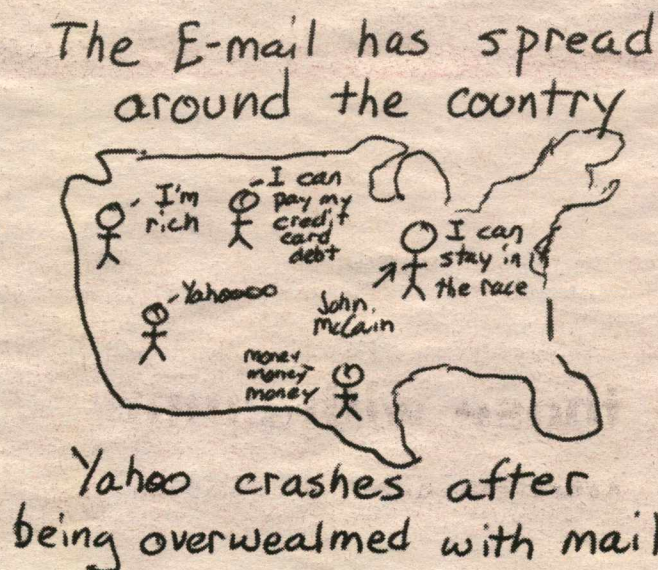 The E-mail has spread
around the country
I'm
rich
I can
pay my
credit
card
debt
I can
stay in
the race
Yahoooo
John
McCain
money
money
money
Yahoo crashes after
being overwealmed with mail